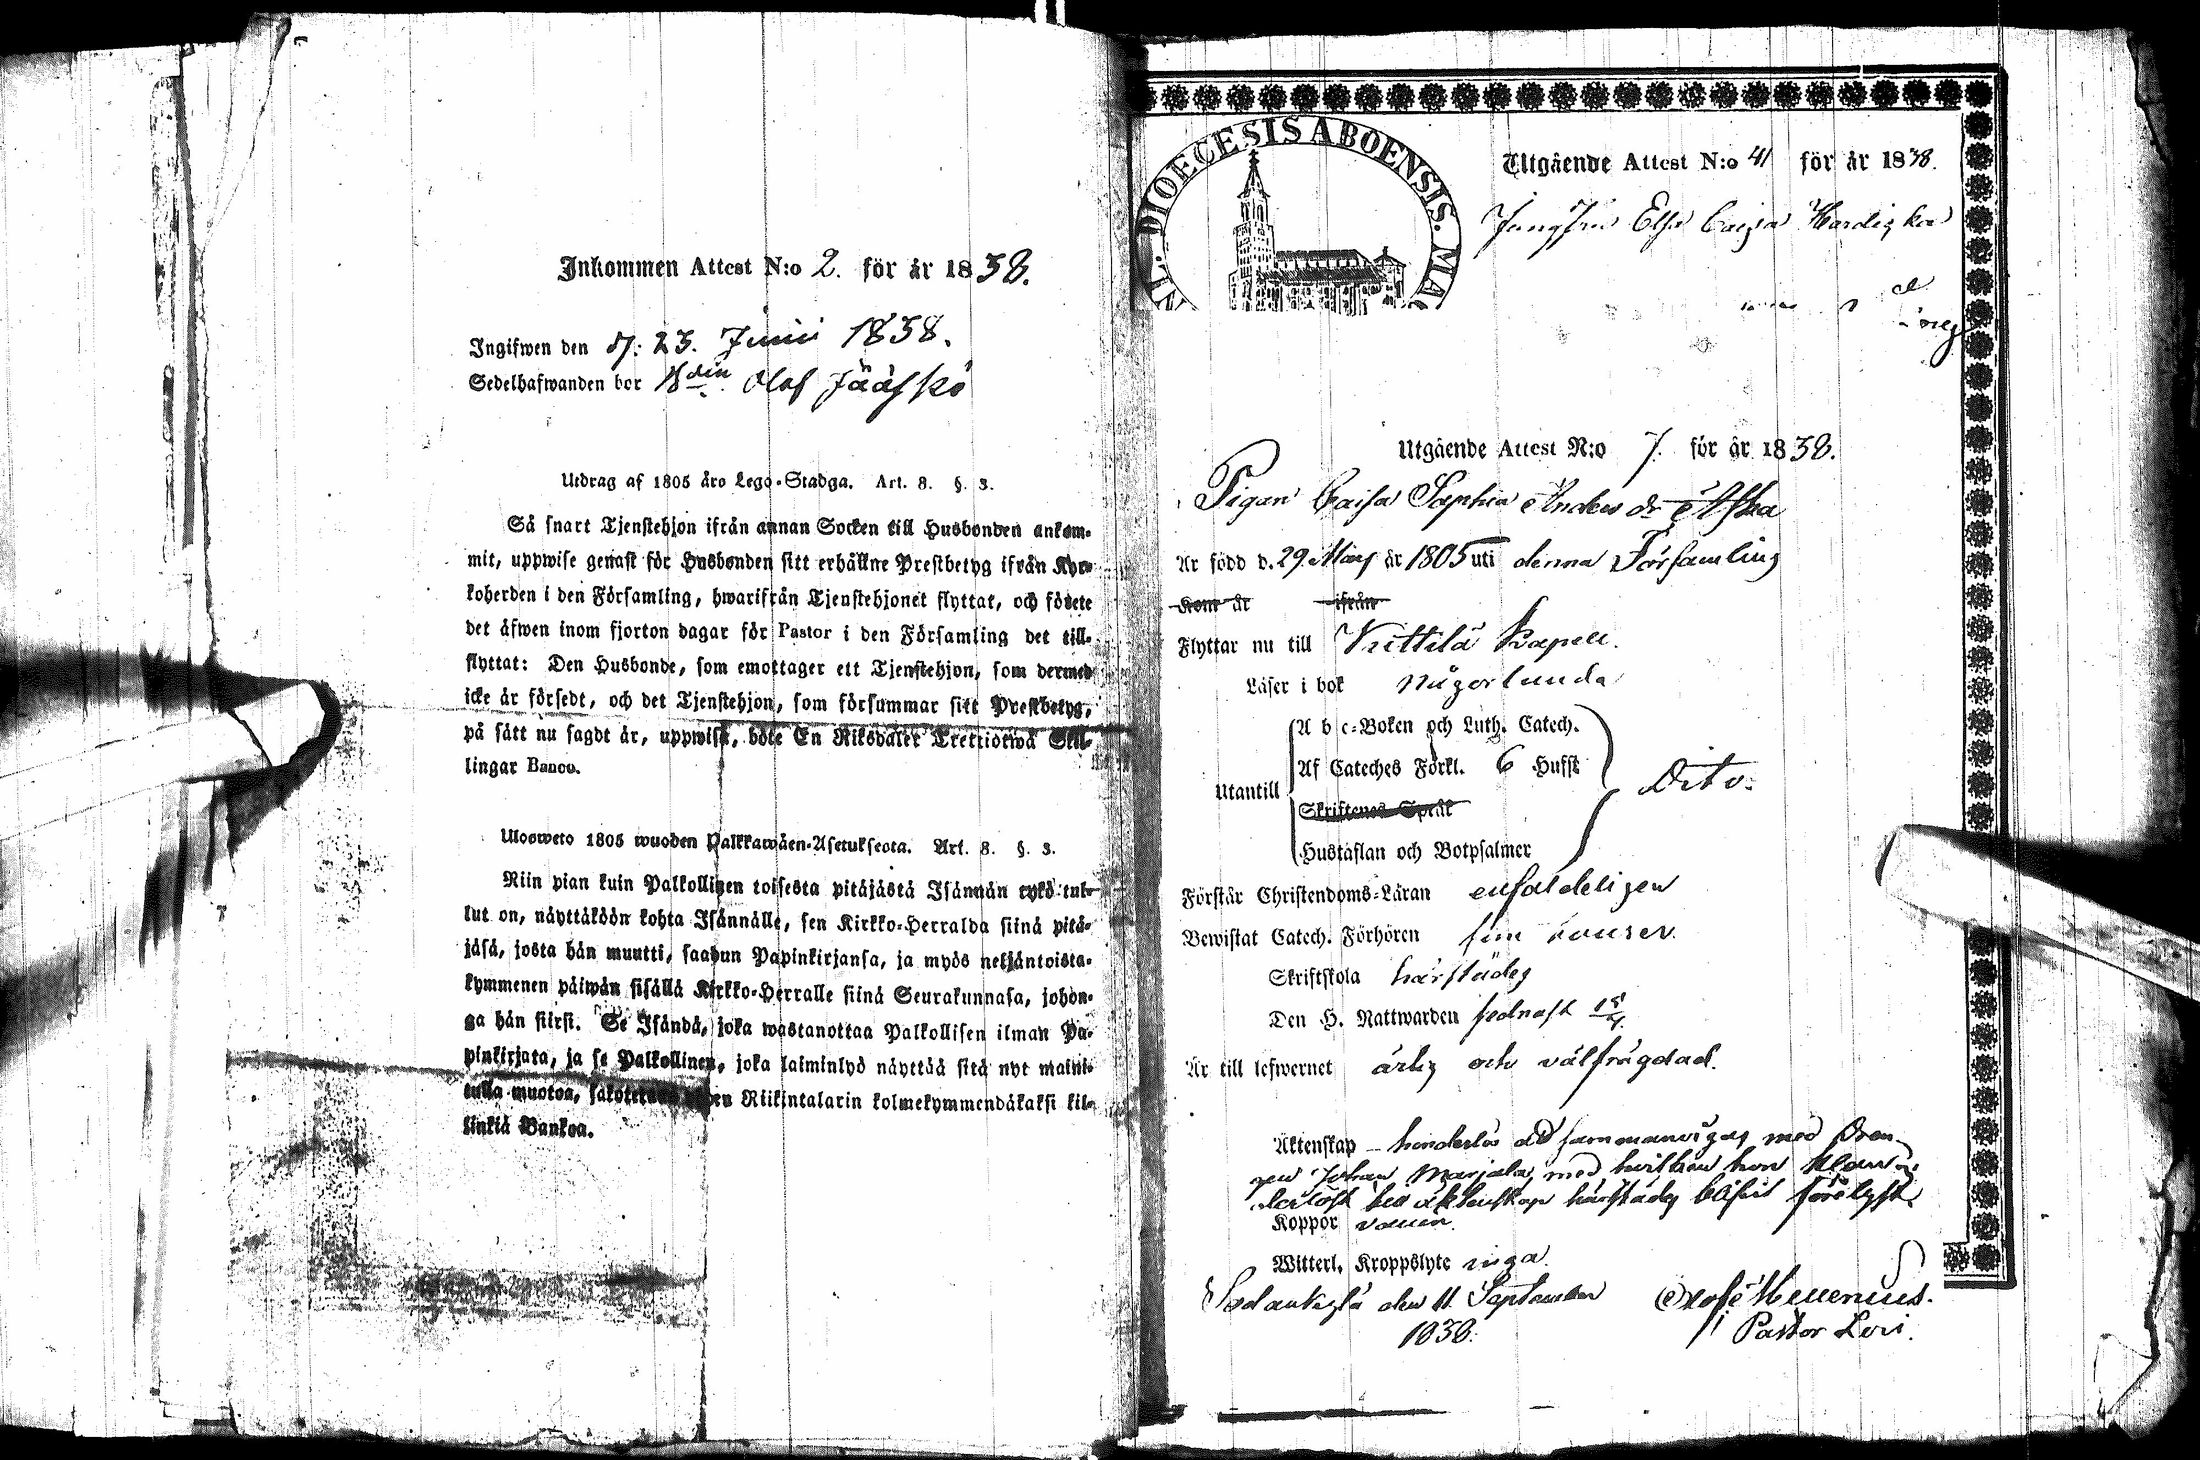 Inkommen Attest N:o 2. för år 1838.
Ingifwen den d. 23. Junii 1838.
Sedelhafwanden bor Olof Jääskö
Utdrag af 1805 års Lego-Stadga. Art. 8. §. 3.
Så snart Tjenstehjon ifrån annan Socken till Husbonden ankom-
mit, uppwise genast för Husbonden sitt erhållne Prestbetyg ifrån Kyr-
koherden i den Församling, hwarifrån Tjenstehjonet flyttat, och förete
det äfwen inom fjorton dagar för Pastor i den Församling det till-
flyttat: Den Husbonde, som emottager ett Tjenstehjon, som dermed
icke är försedt, och det Tjenstehjon, som försummar sitt Prestbetyg,
på sätt nu sagdt är, uppwisa, böte En Riksdaler Trettiotwå Skil-
lingar Banco.
Ulosweto 1805 wuoden Palkkawäen-Asetuksesta. Art. 8. §. 3.
Niin pian kuin Palkollinen toisesta pitäjästä Isännän tykö tul-
lut on, näyttäköön kohta Isännälle, sen Kirkko-Herralda siinä pitä-
jäsä, josta hän muutti, saadun Papinkirjansa, ja myös neljäntoista-
kymmenen päiwän sisällä Kirkko-Herralle siinä Seurakunnasa, johon-
ga hän siirsi. Se Isändä, joka wastanottaa Palkollisen ilman Pa-
pinkirjata, ja se Palkollinen, joka laiminlyö näyttää sitä nyt maini-
tulla muotoa, sakotetaan yhden Riikintalarin kolmekymmendäkaksi kil-
linkiä Bankoa.
DIOECESIS ABOENSIS. MA
Utgående Attest N:o 41 för år 1838.
Jungfru Elsa Caisa Hardigka
Utgående Attest N:o 7. för år 1838.
Pigan Caisa Sophia Anders dr Aska
Är född d. 29. Maij år 1805 uti denna Församling
Kom år ifrån
Flyttar nu till Kittilä Kapell.
Läser i bok någorlunda
Utantill
A b c-Boken och Luth. Catech.
Af Cateches Förkl. 6 Hufst
Skriftenes Språk
Hustaflan och Botpsalmer
Dito.
Förstår Christendoms-Läran enfaldeligen
Bewistat Catech. Förhören sin
Skriftskola härstädes
Den H. Nattwarden sednast
Är till lefwernet ärlig och välfrägdad.
Äktenskap hinderlös att sammanvigas med Dren-
gen Johan Marjala, med hvilken hon
till äktenskap härstädes blifvit förelyst
Koppor
Witterl. Kroppslyte inga
Sodankylä den 11. September
1838.
Mellenius.
Pastor Loci.